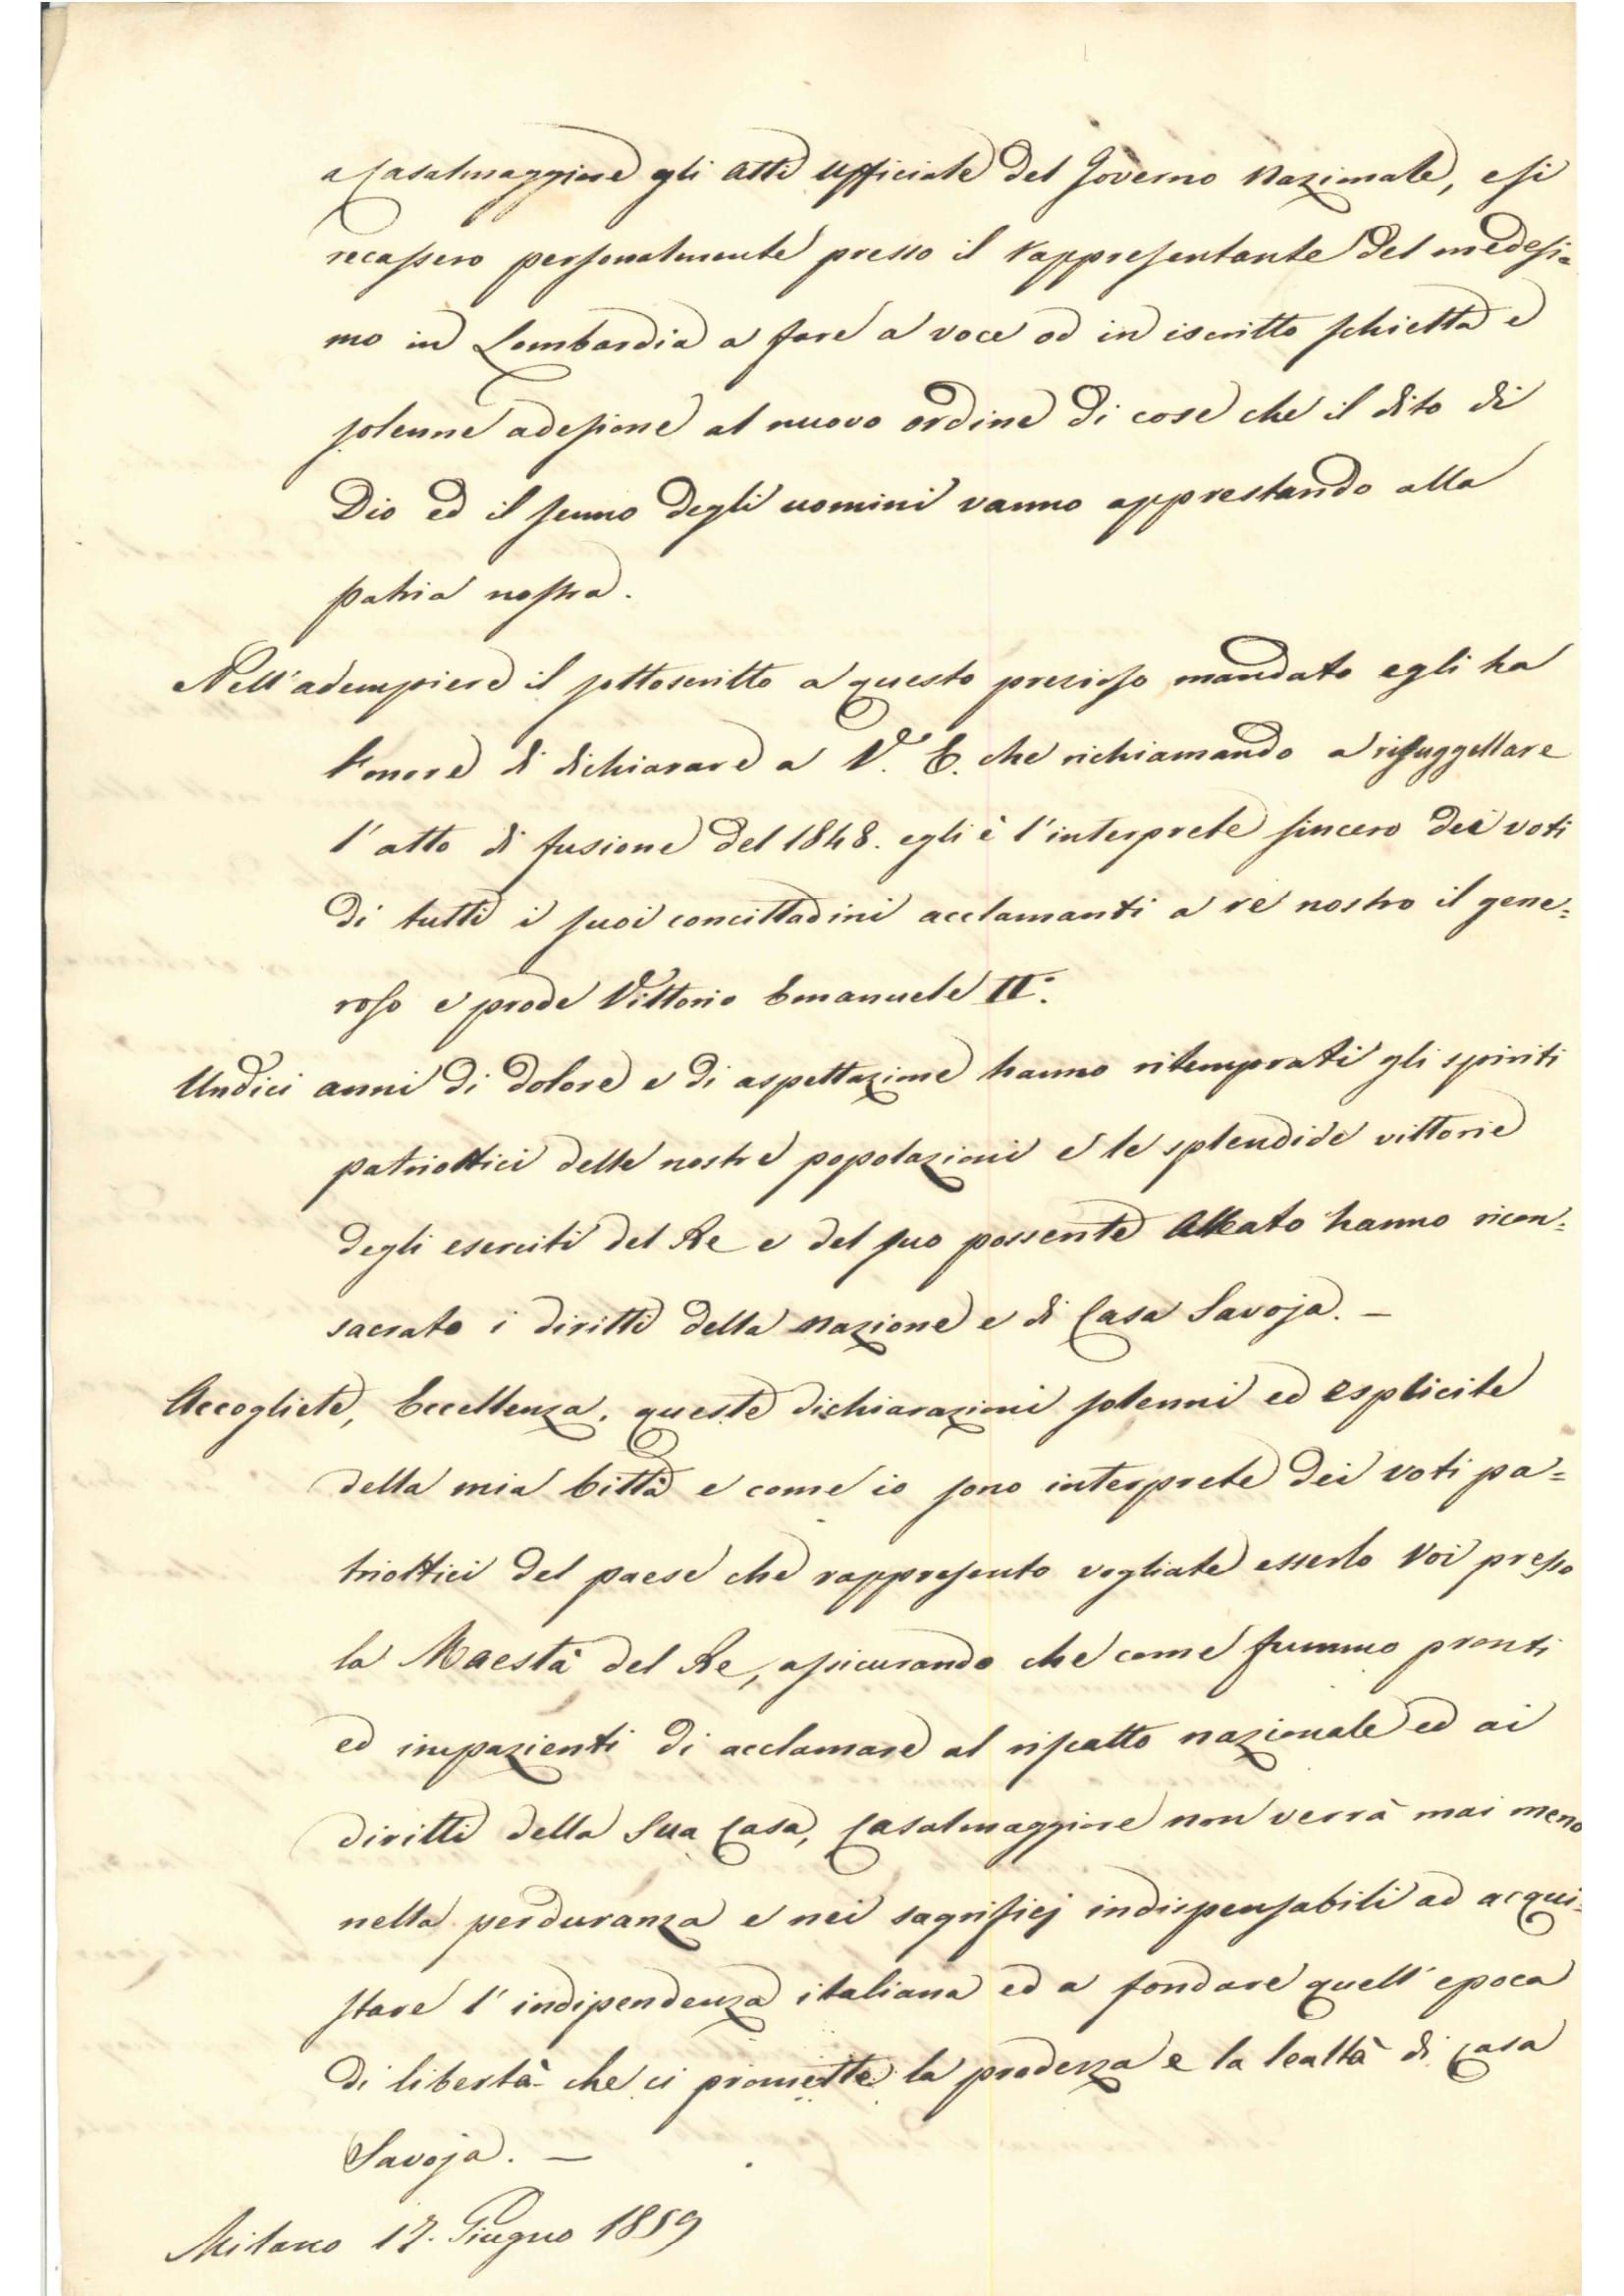 a Casalmaggiore gli atti ufficiali del Governo Nazionale, e si
recassero personalmente presso il rappresentante del medesi=
mo in Lombardia a fare a voce od in iscritto schietta e
solenne adesione al nuovo ordine di cose che il dito di
Dio ed il senno degli uomini vanno apprestando alla
patria nostra.
Nell'adempiere il sottoscritto a questo prezioso mandato egli ha
l'onore di dichiarare a V. E. che richiamando a risuggellare
l'atto di fusione del 1848. egli è l'interprete sincero dei voti
di tutti i suoi concittadini acclamanti a re nostro il gene=
roso e prode Vittorio Emanuele II°.
Undici anni di dolore e di aspettazione hanno ritemprati gli spiriti
patriottici delle nostre popolazioni e le splendide vittorie
degli eserciti del Re e del suo possente Alleato hanno ricon=
sacrato i diritti della nazione e di Casa Savoja. —
Accogliete, Eccellenza, queste dichiarazioni solenni ed esplicite
della mia Città e come io sono interprete dei voti pa=
triottici del paese che rappresento vogliate esserlo Voi presso
la Maestà del Re, assicurando che come fummo pronti
ed impazienti di acclamare al riscatto nazionale ed ai
diritti della Sua Casa, Casalmaggiore non verrà mai meno
nella perduranza e nei sagrificj indispensabili ad acqui=
stare l'indipendenza italiana ed a fondare quell'epoca
di libertà che ci promette la prodezza e la lealtà di Casa
Savoja. —
Milano 17. Giugno 1859